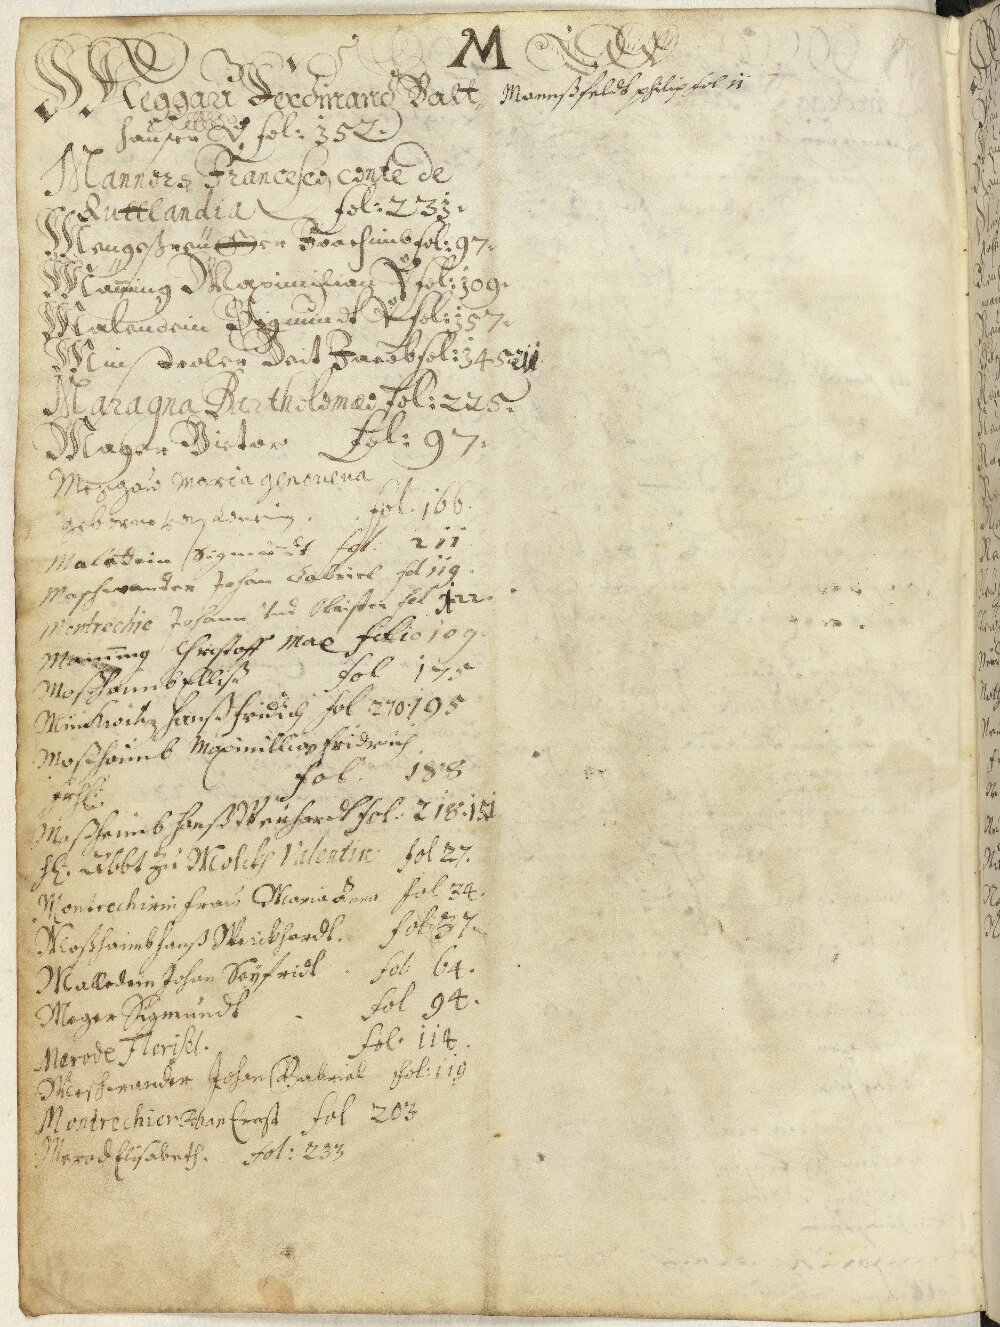 M
Meggau Ferdinand Balt
Mannßfeldt philip fol 11
hauser fol: 152.
Manners Francesco conte de
Ruttlandia fol: 231.
Joachimb fol: 97.
Männing Maximilian fol: 109.
Malendein Sigmundt fol: 157.
Veit Jacob fol: 145. 211
Maragna Bartholomæo fol: 225.
Mager Victor fol: 97.
Meggau Maria genoueua
geborne fol. 166.
Maladein Sigmundt fol. 211
Maschwander Johan Gabriel fol 119.
Montrechie Johann fol 122.
Mäinning Christoff Mae folio 109.
Moßhaimb Elliß fol 175
Minkwitz Hanß fridrich fol 270. 195
Moßhaimb Maximillian fridrich
fol. 188
Moßhaimb hanß Weickhardt fol: 218. 151
H. Abbt zu Molckh Valentin fol 27.
Montrechirin frau Maria Anna fol 34.
Moßhaimb hanß Weickhardt. fol: 37.
Malledein Johan Seyfridt fol 64.
Mager Sigmundt fol 94.
Merode Florißel. fol. 114.
Maschwander Johan Gabriel fol: 119
Montrechier Johan Ernst fol 203
Merod Elisabeth. fol: 233